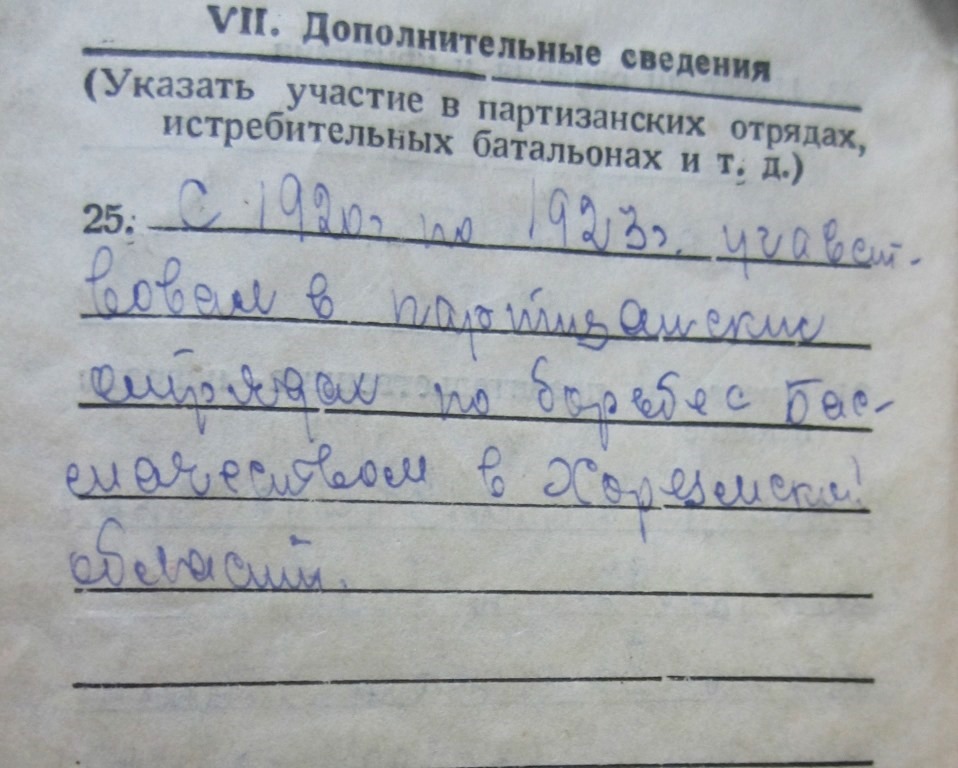 VII. Дополнительные сведения
(Указать участие в партизанских отрядах,
истребительных батальонах и т. д.)
25. С 1920г по 1923г. учавст-
вовал в партизанских
отрядах по борьбе с Бас-
мачеством в Хорезмской
области.